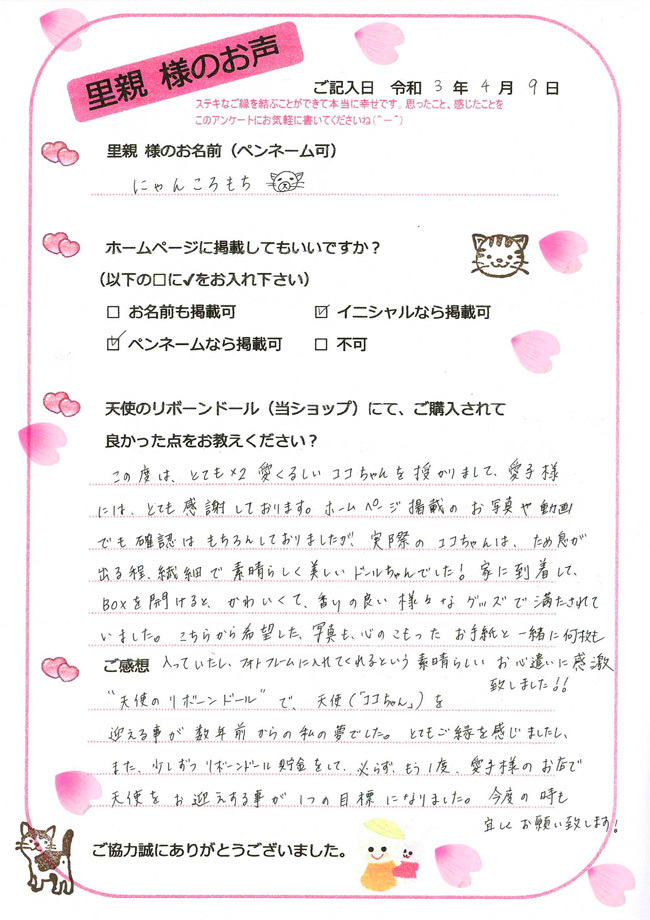 里親 様のお声
ご記入日 令和 3 年 4 月 9 日
ステキなご縁を結ぶことができて本当に幸せです。思ったこと、感じたことを
このアンケートにお気軽に書いてくださいね(^ー^)
里親 様のお名前（ペンネーム可）
にゃんころもち
ホームページに掲載してもいいですか？
（以下の□に✓をお入れ下さい）
□ お名前も掲載可 ☑ イニシャルなら掲載可
☑ ペンネームなら掲載可 □ 不可
天使のリボーンドール（当ショップ）にて、ご購入されて
良かった点をお教えください？
この度は、とても×2 愛くるしいココちゃんを授かりまして、愛子様
には、とても感謝しております。ホームページ掲載のお写真や動画
でも確認はもちろんしておりましたが、実際のココちゃんは、ため息が
出る程、繊細で素晴らしく美しいドールちゃんでした！家に到着して、
BOXを開けると、かわいくて、香りの良い様々なグッズで満たされて
いました。こちらから希望した、写真も、心のこもったお手紙と一緒に何枚も
ご感想 入っていたし、フォトフレームに入れてくれるという素晴らしいお心遣いに感激
致しました!!
"天使のリボーンドール"で、天使(「ココちゃん」)を
迎える事が数年前からの私の夢でした。とてもご縁を感じましたし、
また、少しずつリボーンドール貯金をして、必らず、もう1度、愛子様のお店で
天使をお迎えする事が1つの目標になりました。今度の時も
宜しくお願い致します！
ご協力誠にありがとうございました。